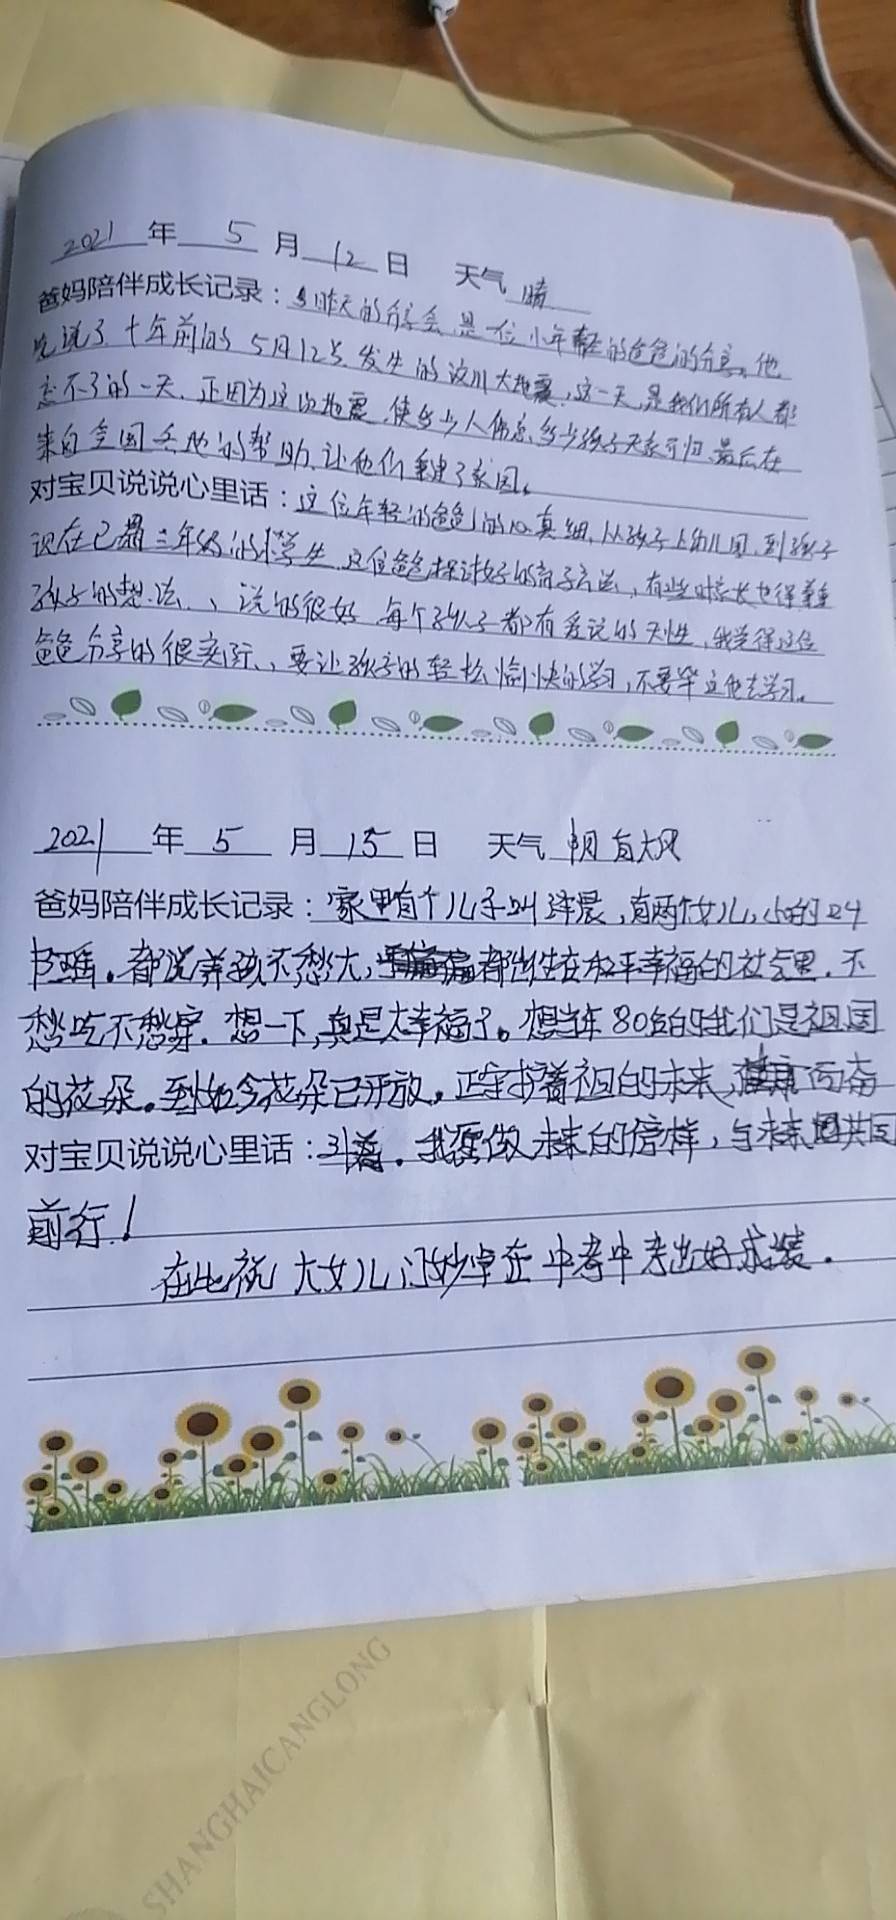 2021 年 5 月 12 日 天气 晴
爸妈陪伴成长记录：昨天的分享会是一位年轻的爸爸的分享。他
先说了十年前的5月12号发生的汶川大地震，这一天是我们所有人都
忘不了的一天，正因为这次地震，使多少人伤亡，多少孩子无家可归，最后在
来自全国各地的帮助，让他们重建了家园。
对宝贝说说心里话：这位年轻的爸爸的心真细，从孩子上幼儿园，到孩子
现在已是三年级的小学生，这位爸爸探讨好的育子方法，有些时候家长也得尊重
孩子的想法、说的很好，每个孩子都有爱说的天性，我觉得这位
爸爸分享的很实际、要让孩子的轻松愉快的学习，不要逼他去学习。
2021 年 5 月 15 日 天气 阴 有大风
爸妈陪伴成长记录：家里有个儿子叫晨，有两个女儿，小的叫
瑶。都说养孩不愁大，都出生在和平幸福的社会里，不
愁吃不愁穿。想一下，真是太幸福了。想当年80后的我们是祖国
的花朵。到如今花朵已开放，正守护着祖国的未来，而奋
对宝贝说说心里话：斗着。我愿做未来的榜样，与未来共同
前行！
在此祝大女儿妙卓在中考中考出好成绩。
SHANGHAICANGLONG